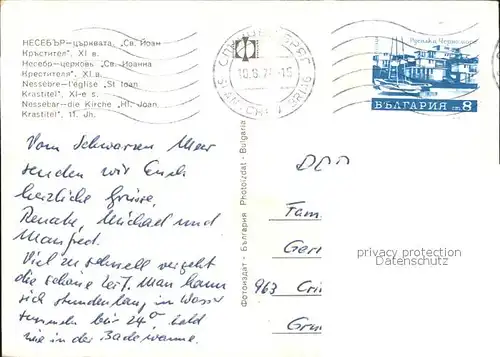 НЕСЕБЪР-църквата, „Св. Йоан
Кръстител". XI в.
Несебр-церковь „Св. Иоанна
Крестителя" XI в.
Nessebre-l'église „St Ioan
Krastitel". XI-e s.
Nessebar-die Kirche „Hl. Joan
Krastitel", 11. Jh.
10.9.7
БЪЛГАРИЯ ст. 8
Vom Schwarzen Meer
senden wir Euch
herzliche Grüsse,
Renate, Michael und
Manfred.
Viel zu schnell vergeht
die schöne Zeit. Man kann
sich stundenlang im Wasser
tummeln bei 24°, bald
wie in der Badewanne.
Фотоиздат · България · Photoizdat · Bulgaria
DDR
Fam
Ger
963 Cri
Gri
privacy protection
Datenschutz